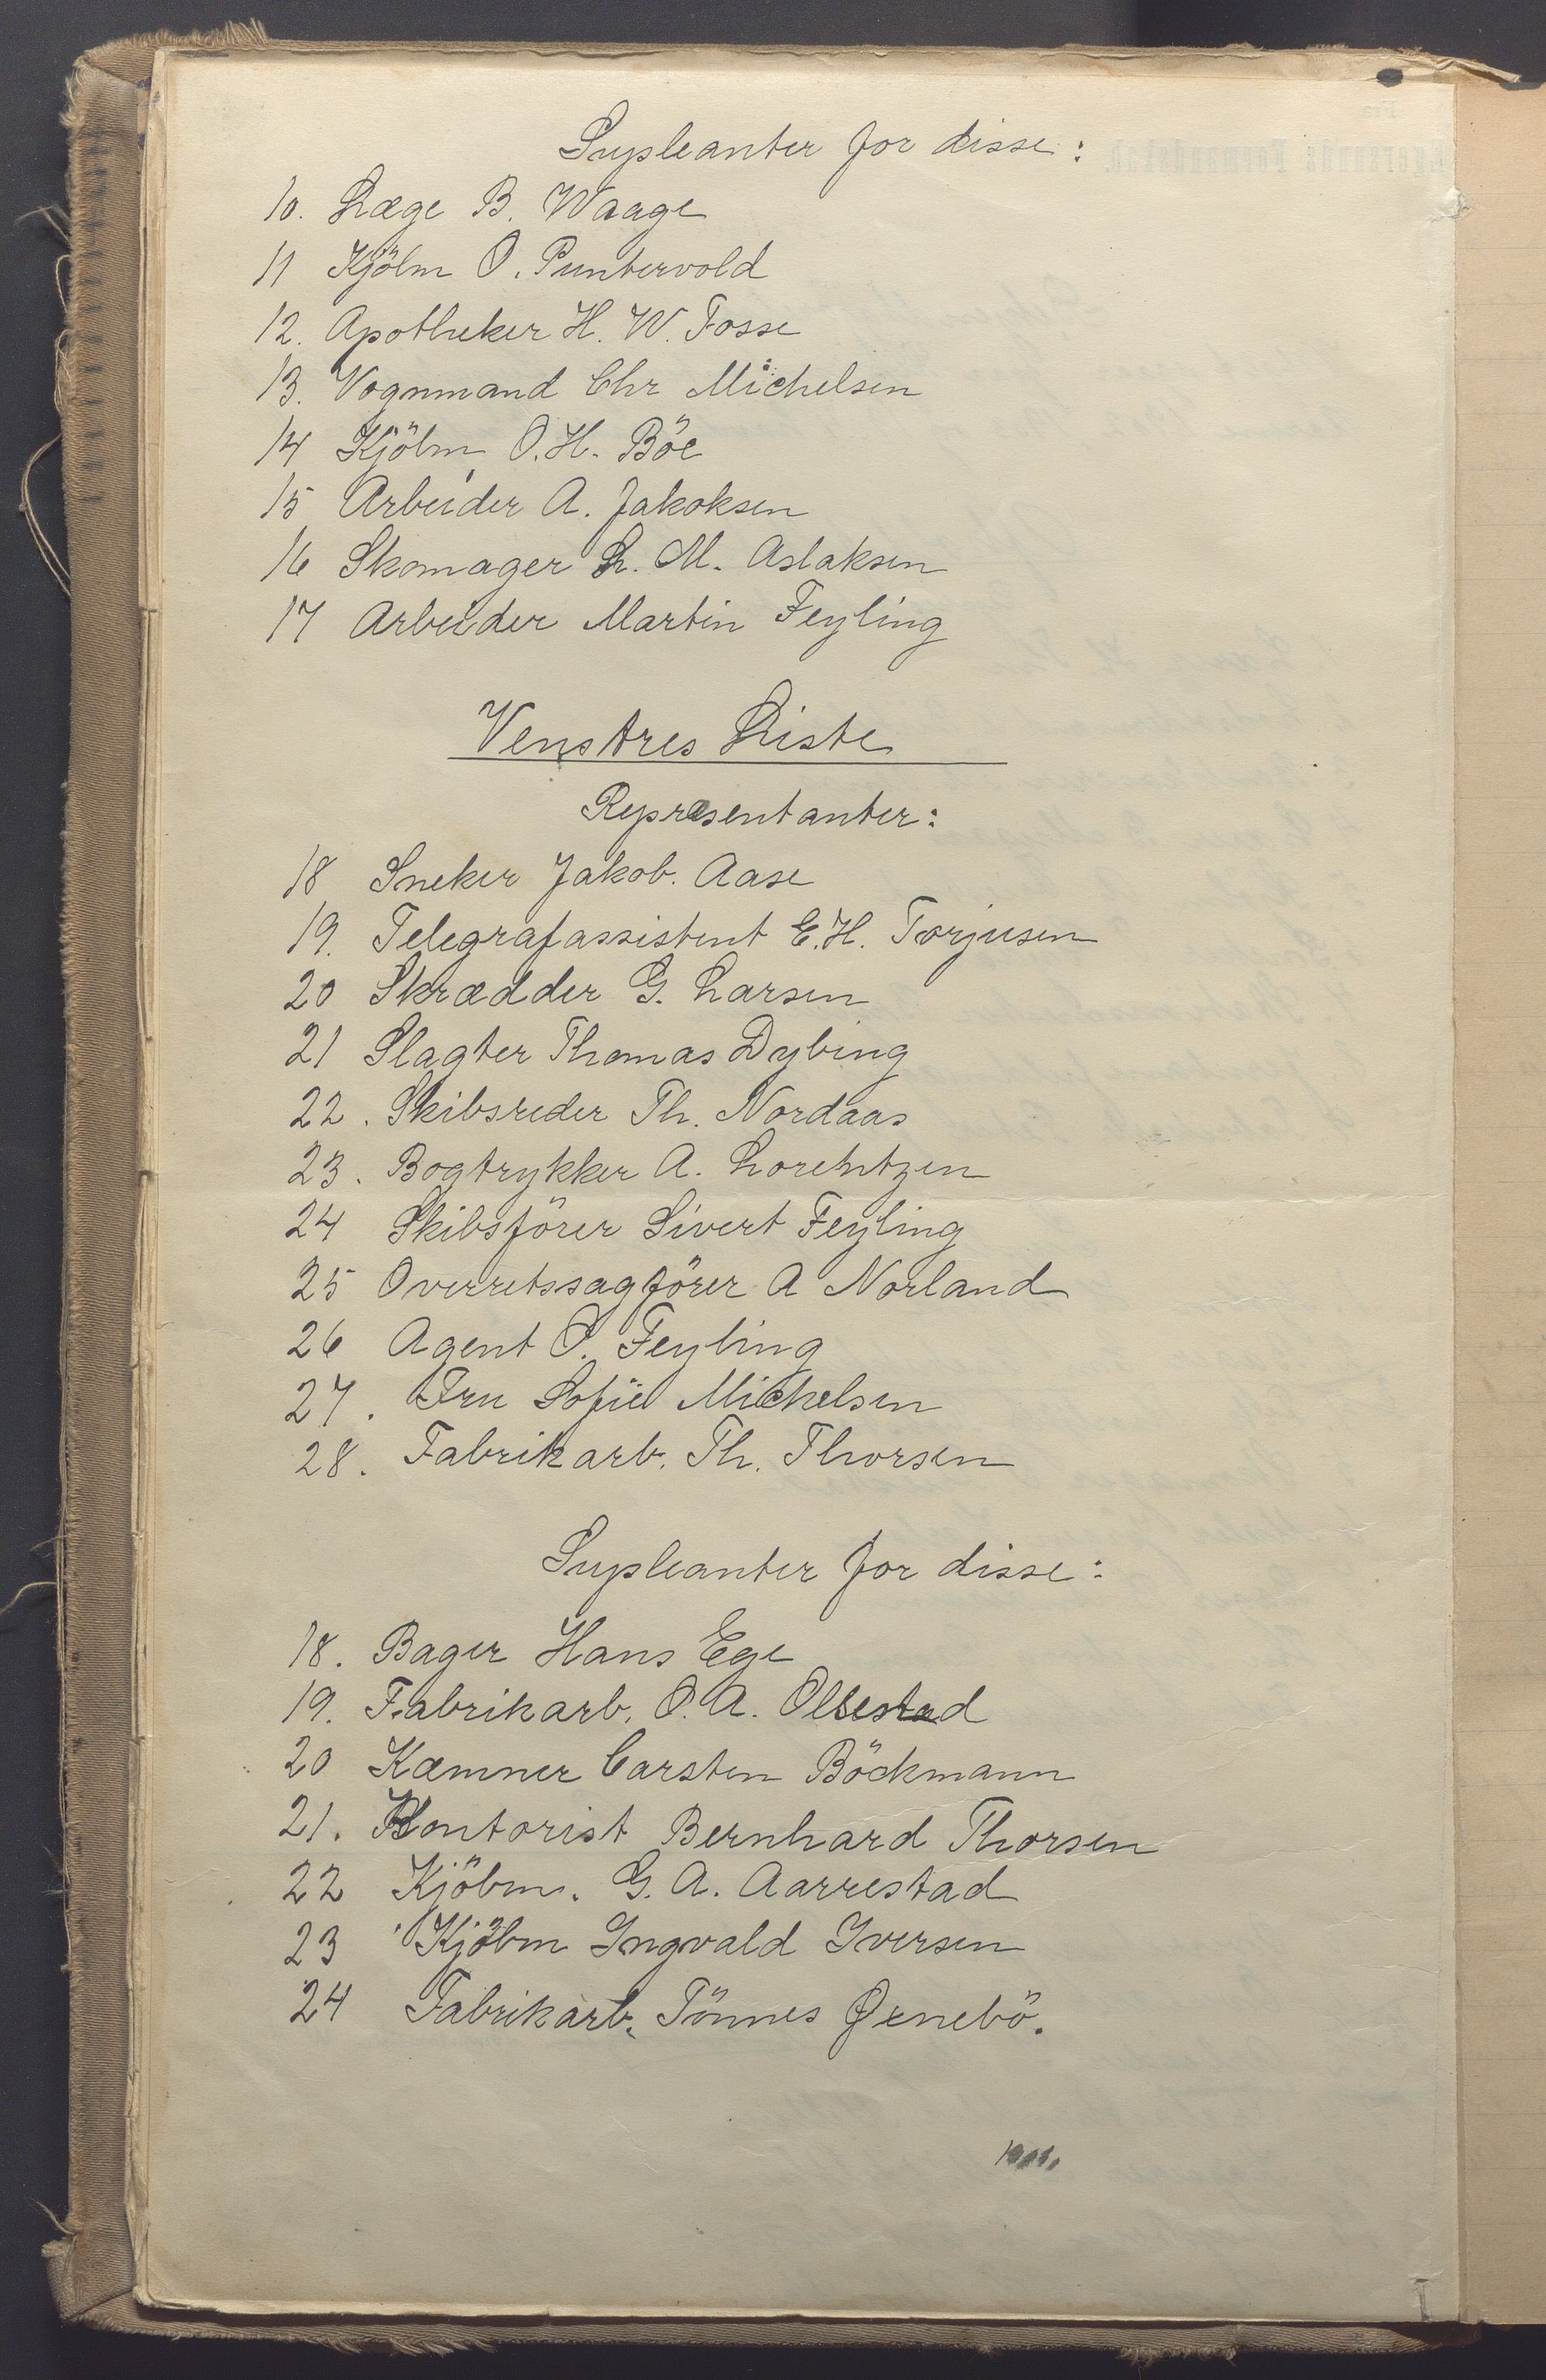 Supleanter for disse:
10. Læge B. Waage
11 Kjöbm O. Puntervold
12. Apotheker H. W. Fosse
13. Vognmand Chr Michelsen
14 Kjöbm, O. H. Böe
15 Arbeider A. Jakoksen
16 Skomager L. M. Aslaksen
17 Arbeider Martin Feyling
Venstres Liste
Repræsentanter:
18 Sneker Jakob. Aase
19. Telegrafassistent E. H. Torjusen
20 Skrædder G. Larsen
21 Slagter Thomas Dybing
22. Skibsreder Th. Nordaas
23. Bogtrykker A. Lorentzen
24 Skibsförer Sivert Feyling
25 Overretssagförer A Norland
26 Agent O. Feyling
27. Fru Sofie Michelsen
28. Fabrikarb. Th. Thorsen
Supleanter for disse:
18. Bager Hans Ege
19. Fabrikarb. O. A. Ollestad
20 Kæmner Carsten Böckmann
21. Kontorist Bernhard Thorsen
22 Kjöbm. G. A. Aarrestad
23 Kjöbm Ingvald Iversen
24 Fabrikarb. Tönnes Ørnebö.